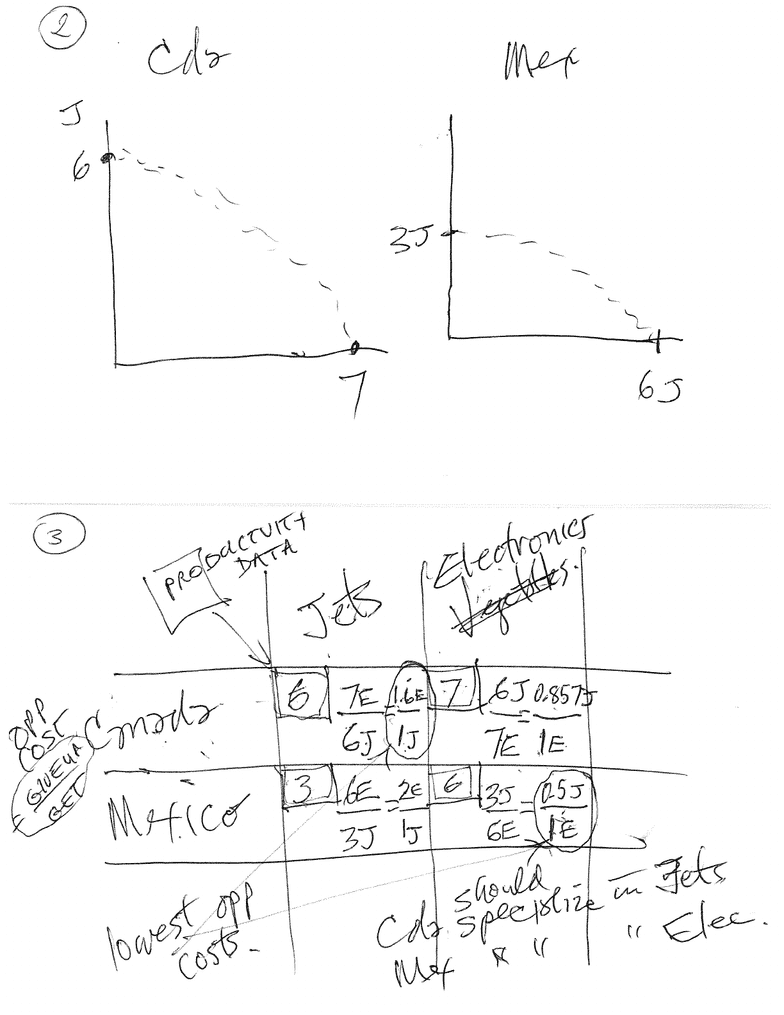 2
Cda Mex
J
6
3J
7
6J
3
PRODUCTIVITY
DATA
Jets
Electronics
Vegetbles.
OPP
COST
= GIVE UP
GET
Canada
6 7E/6J = 1.6E/1J
7 6J/7E = 0.857J/1E
Mexico
3 6E/3J = 2E/1J
6 3J/6E = 0.5J/1E
lowest opp
costs.
Cda should specialize in Jets
Mex " " " Elec.